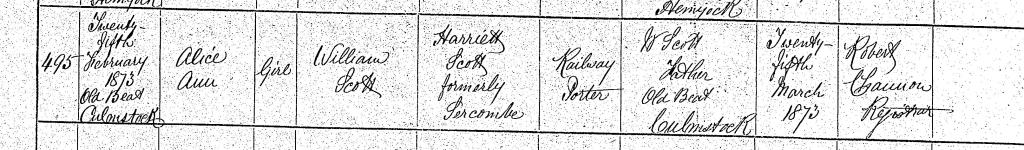 Hemyock
Hemyock
495
Twenty-
fifth
February
1873
Old Beat
Culmstock
Alice
Ann
Girl
William
Scott
Harriett
Scott
formerly
Sercombe
Railway
Porter
W Scott
Father
Old Beat
Culmstock
Twenty-
fifth
March
1873
Robert
Channon
Registrar